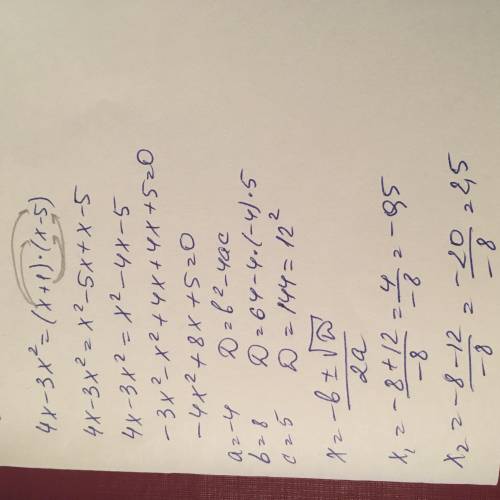 4x-3x²=(x+1)·(x-5)
4x-3x²=x²-5x+x-5
4x-3x²=x²-4x-5
-3x²-x²+4x+4x+5=0
-4x²+8x+5=0
a=-4 D=b²-4ac
b=8 D=64-4·(-4)·5
c=5 D=144=12²
x=-b±√D/2a
x₁=-8+12/-8=4/-8=-0,5
x₂=-8-12/-8=-20/-8=2,5